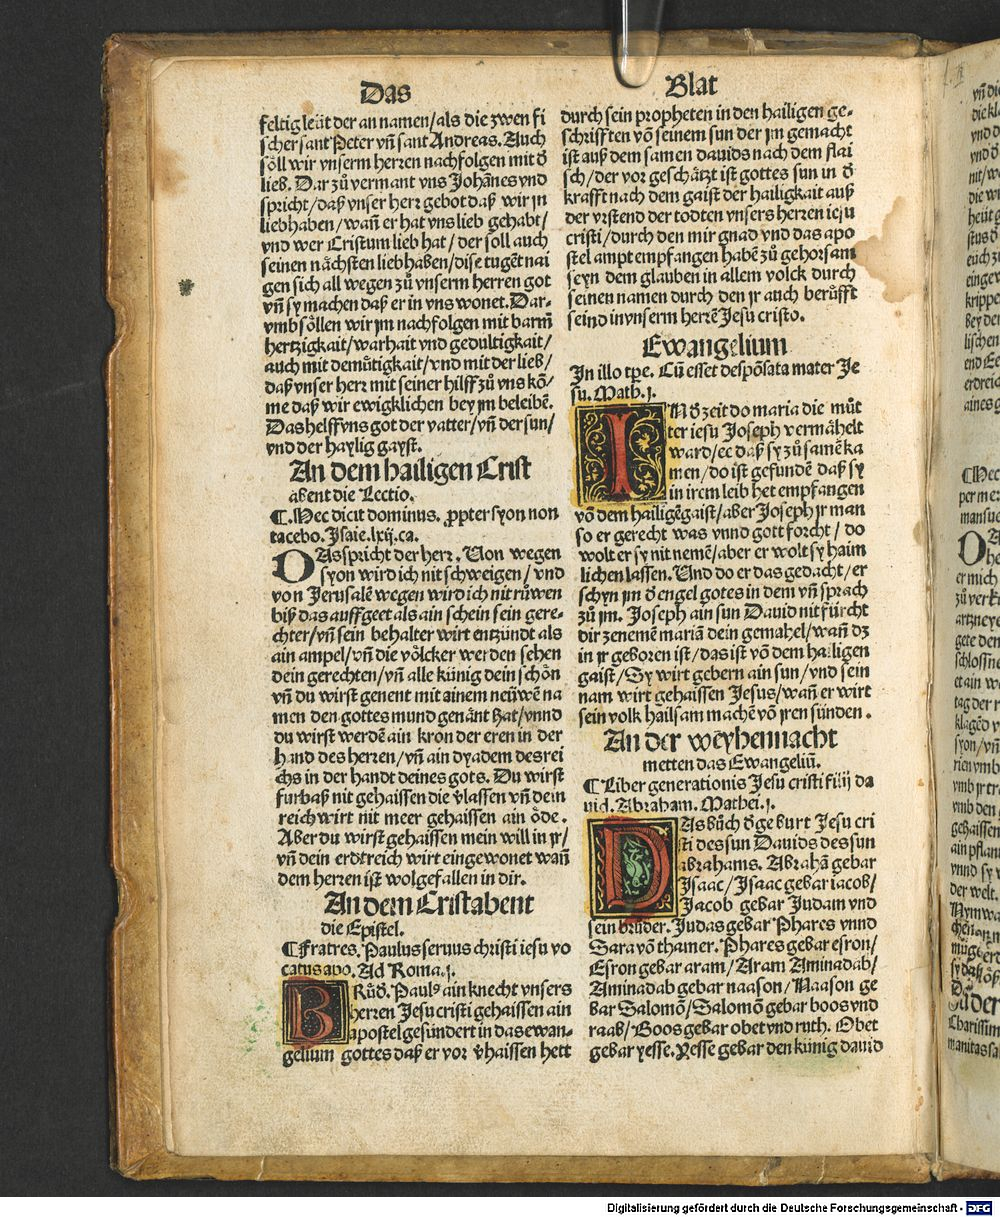 Das
Blat
feltig leüt der an namen/als die zwen fi
scher sant Peter vñ sant Andreas. Auch
söll wir vnserm herren nachfolgen mit đ
lieb. Dar zů vermant vns Johānes vnd
spricht/daß vnser herr gebot daß wir jn
liebhaben/wañ er hat vns lieb gehabt/
vnd wer Cristum lieb hat/der soll auch
seinen nächsten liebhaben/dise tugēt nai
gen sich all wegen zů vnserm herren got
vñ sy machen daß er in vns wonet. Dar-
vmb söllen wir jm nachfolgen mit barm̄
hertzigkait/warhait vnd gedultigkait/
auch mit demůtigkait/vnd mit der lieb/
daß vnser herr mit seiner hilff zů vns kō/
me daß wir ewigklichen bey jm beleibē.
Das helff vns got der vatter/vñ der sun/
vnd der haylig gayst.
An dem hailigen Crist
abent die Lectio.
¶. Hec dicit dominus. ꝓpter syon non
tacebo. Isaie. lxij. ca.
DAs spricht der herr. Von wegen
syon wird ich nit schweigen/vnd
von Jerusalē wegen wird ich nit růwen
biß das auffgeet als ain schein sein gere-
chter/vñ sein behalter wirt entzündt als
ain ampel/vñ die völcker werden sehen
dein gerechten/vñ alle künig dein schön
vñ du wirst genent mit ainem neüwē na
men den gottes mund genānt hat/vnnd
du wirst werdē ain kron der eren in der
hand des herren/vñ ain dyadem des rei
chs in der handt deines gots. Du wirst
furbaß nit gehaissen die v̄lassen vñ dein
reich wirt nit meer gehaissen ain öde.
Aber du wirst gehaissen mein will in jr/
vñ dein erdtreich wirt eingewonet wañ
dem herren ist wolgefallen in dir.
An dem Cristabent
die Epistel.
¶ Fratres. Paulus seruus christi iesu vo
catus apo. Ad Roma. j.
BRůđ. Paulꝰ ain knecht vnsers
herren Jesu cristi gehaissen ain
apostel gesündert in das ewan-
gelium gottes daß er vor v̄haissen hett
durch sein propheten in den hailigen ge-
schrifften vō seinem sun der jm gemacht
ist auß dem samen dauids nach dem flai
sch/der vor geschätzt ist gottes sun in đ
krafft nach dem gaist der hailigkait auß
der vrstend der todten vnsers herren iesu
cristi/durch den mir gnad vnd das apo
stel ampt empfangen habē zů gehorsam
seyn dem glauben in allem volck durch
seinen namen durch den jr auch berůfft
seind in vnserm herrē Jesu cristo.
Ewangelium
In illo tp̄e. Cū esset despōsata mater Je
su. Math. j.
IN đ zeit do maria die můt
ter iesu Joseph vermähelt
ward/ee daß sy zů samē ka
men/do ist gefundē daß sy
in irem leib het empfangen
vō dem hailigē gaist/aber Joseph jr man
so er gerecht was vnnd gott forcht/do
wolt er sy nit nemē/aber er wolt sy haim
lichen lassen. Und do er das gedacht/er
schyn jm đ engel gotes in dem vñ sprach
zů jm. Joseph ain sun Dauid nit fürcht
dir zenemē mariā dein gemahel/wañ dz
in jr geboren ist/das ist vō dem hailigen
gaist/Sy wirt gebern ain sun/vnd sein
nam wirt gehaissen Jesus/wañ er wirt
sein volk hailsam machē vō jren sünden.
An der weyhennacht
metten das Ewangeliū.
¶ Liber generationis Jesu cristi filij da
uid. Abraham. Mathei. j.
DAs bůch đ geburt Jesu cri
sti des sun Dauids des sun
abrahams. Abrahā gebar
Isaac/Isaac gebar iacob/
Jacob gebar Judam vnd
sein brüder. Judas gebar Phares vnnd
Sara vō thamer. Phares gebar esron/
Esron gebar aram/Aram Aminadab/
Aminadab gebar naason/Naason ge
bar Salomō/Salomō gebar boos vnd
raab/Boos gebar obet vnd ruth. Obet
gebar yesse. Yesse gebar den künig dauid
Digitalisierung gefördert durch die Deutsche Forschungsgemeinschaft - DFG